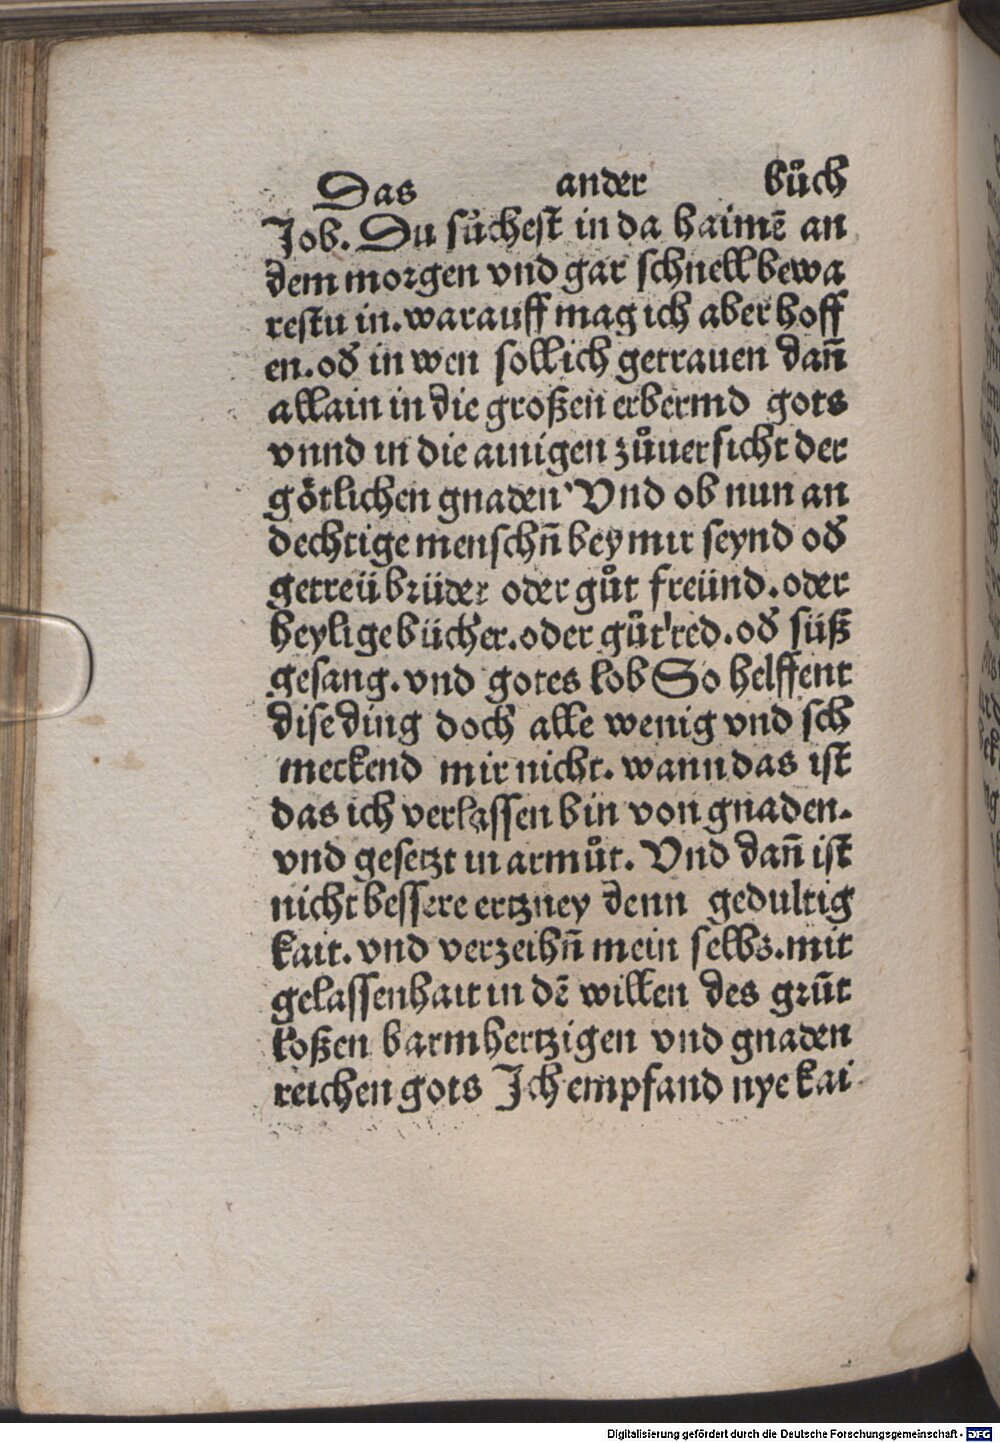 Das ander bůch
Job. Du sůchest in da haimē an
dem morgen vnd gar schnell bewa
restu in. warauff mag ich aber hoff
en. od̕ in wen soll ich getrauen dañ
allain in die großen erbermd gots
vnnd in die ainigen zůuersicht der
götlichen gnaden Vnd ob nun an
dechtige menschñ bey mir seynd od̕
getreü brüder oder gůt freünd. oder
heylige bücher. oder gůt red. od̕ süß
gesang. vnd gotes lob So helffent
dise ding doch alle wenig vnd sch
meckend mir nicht. wann das ist
das ich verlassen bin von gnaden.
vnd gesetzt in armůt. Vnd dañ ist
nicht bessere ertzney denn gedultig
kait. vnd verzeihñ mein selbs. mit
gelassenhait in dē willen des grūt
loßen barmhertzigen vnd gnaden
reichen gots Ich empfand nye kai
Digitalisierung gefördert durch die Deutsche Forschungsgemeinschaft - DFG